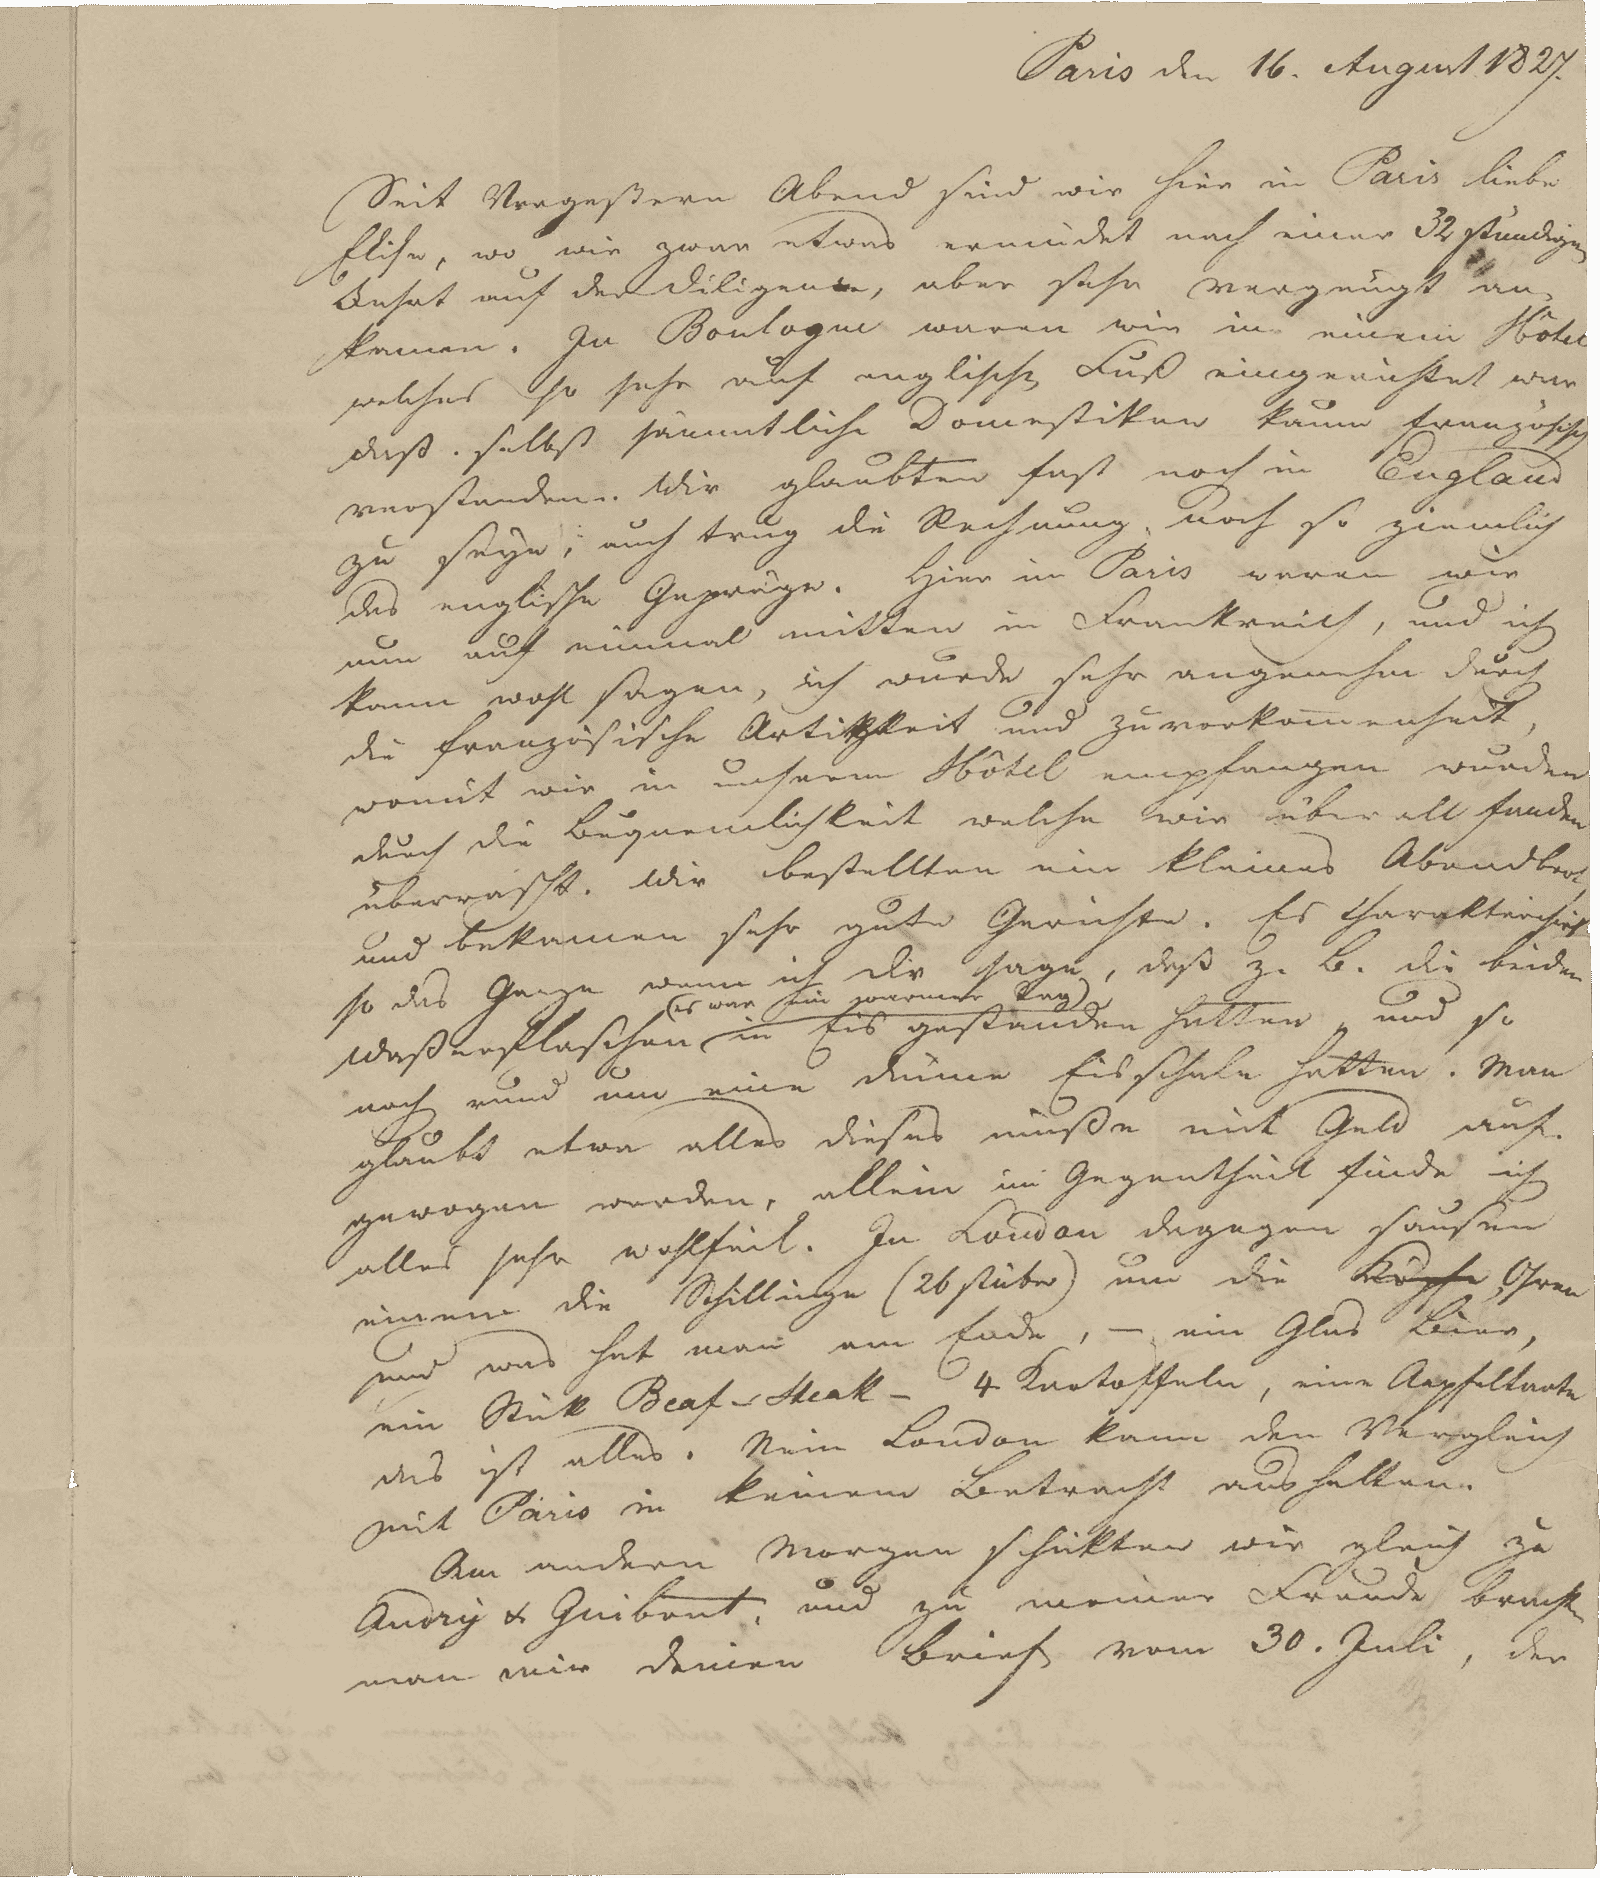 Paris den 16. August 1827.
Seit Vorgeßtern Abend sind wir hier in Paris liebe
Elise, wo wir zwar etwas ermüdet nach einer 32 stündigen
Fahrt auf der Diligence, aber sehr vergnügt an-
kamen. In Boulogne waren wir in einem Hôtel
welches so sehr auf englischen Fuß eingerichtet war
daß selbst sämmtliche Domestiken kaum französisch
verstanden. Wir glaubten fast noch in England
zu seyn; auch trug die Rechnung noch so ziemlich
das englische Gepräge. Hier in Paris waren wir
nun auf einmal mitten in Frankreich, und ich
kann wohl sagen, ich wurde sehr angenehm durch
die französische Artigkeit und Zuvorkom̅enheit,
womit wir in unserem Hôtel empfangen wurden
durch die Bequemlichkeit welche wir überall fanden
überrascht. Wir bestellten ein kleines Abendbrot
und bekamen sehr gute Gerichte. Es charakterisirt
so das Ganze wenn ich dir sage, daß z. B. die beiden
(es war ein warmer Tag)
Waßerflaschen in Eis gestanden hatten und so
noch rund um eine dünne Eisschale hatten. Man
glaubt etwa alles dieses müße mit Geld auf-
gewogen werden, allein im Gegentheil finde ich
alles sehr wohlfeil. In London dagegen sausen
einem die Schillinge (26 stüber) um die Köpfe Ohren
und was hat man am Ende, – ein Glas Bier,
ein Stük Beaf-Steak – 4 Kartoffeln, eine Aepfeltarte
das ist alles. Nein London kann den Vergleich
mit Paris in keinem Betracht aushalten.
Am andern Morgen schikten wir gleich zu
Andry & Guibout, und zu meiner Freude brachte
man mir deinen Brief vom 30. Juli, der